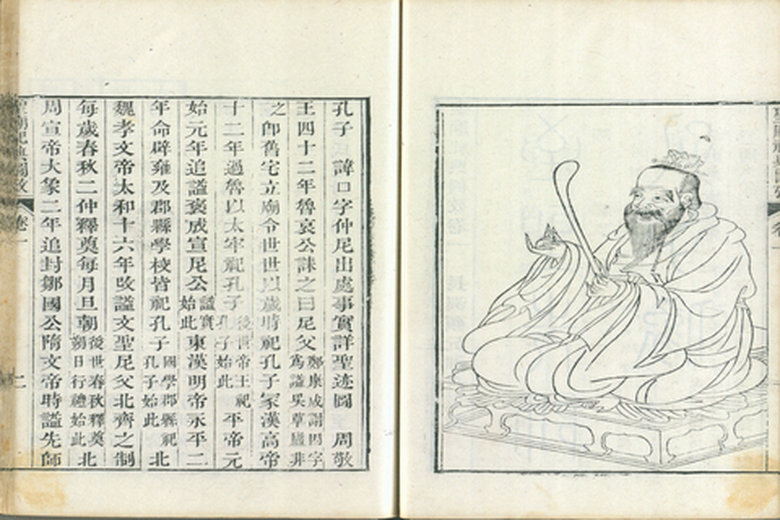 孔子 諱口字仲尼出處事實詳聖迹圖 周敬
王四十二年魯哀公誄之曰尼父鄭康成謂因字爲謚吳草廬非
之卽舊宅立廟令世世以歲時祀孔子家漢高帝
十二年過魯以太牢祀孔子後世帝王祀孔子始此平帝元
始元年追謚褒成宣尼公謚實始此東漢明帝永平二
年命辟雍及郡縣學校皆祀孔子國學郡縣祀孔子始此北
魏孝文帝太和十六年改謚文聖尼父北齊之制
每歲春秋二仲釋奠每月旦朝後世春秋釋奠朔日行禮始此北
周宣帝大象二年追封鄒國公隋文帝時謚先師
聖廟祀典圖攷 卷一 二